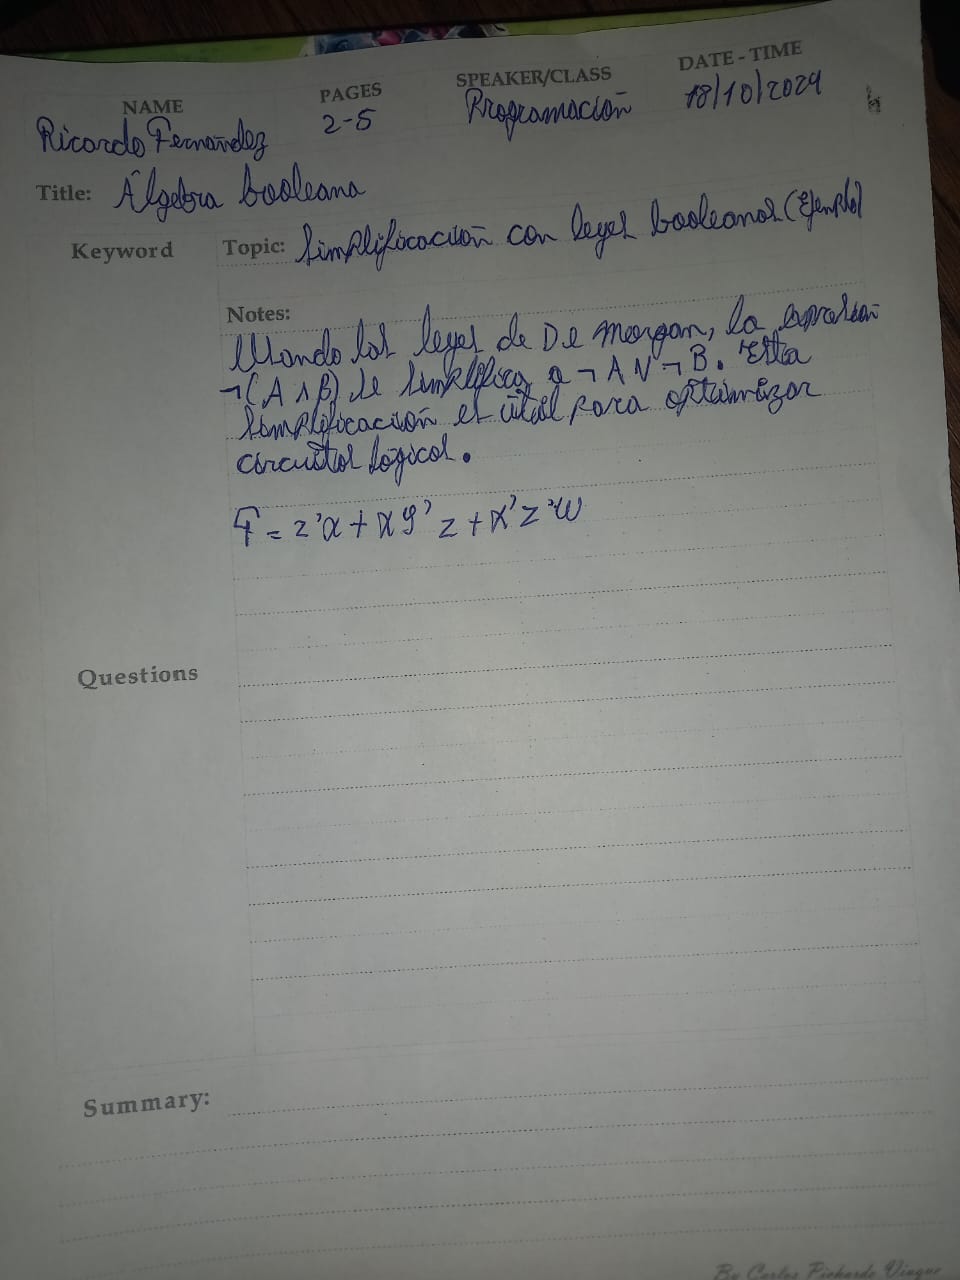 NAME PAGES SPEAKER/CLASS DATE - TIME
Ricardo Fernández 2-5 Programación 18/10/2024
Title: Álgebra booleana
Keyword Topic: Simplificación con leyes booleanas (Ejemplo)
Notes:
Usando las leyes de De Morgan, la expresión
¬(A ∧ B) se simplifica a ¬A ∨ ¬B. Esta
simplificación es útil para optimizar
circuitos lógicos.
F = z'x + xy'z + x'z'w
Questions
Summary:
By Carlos Pichardo Vinque